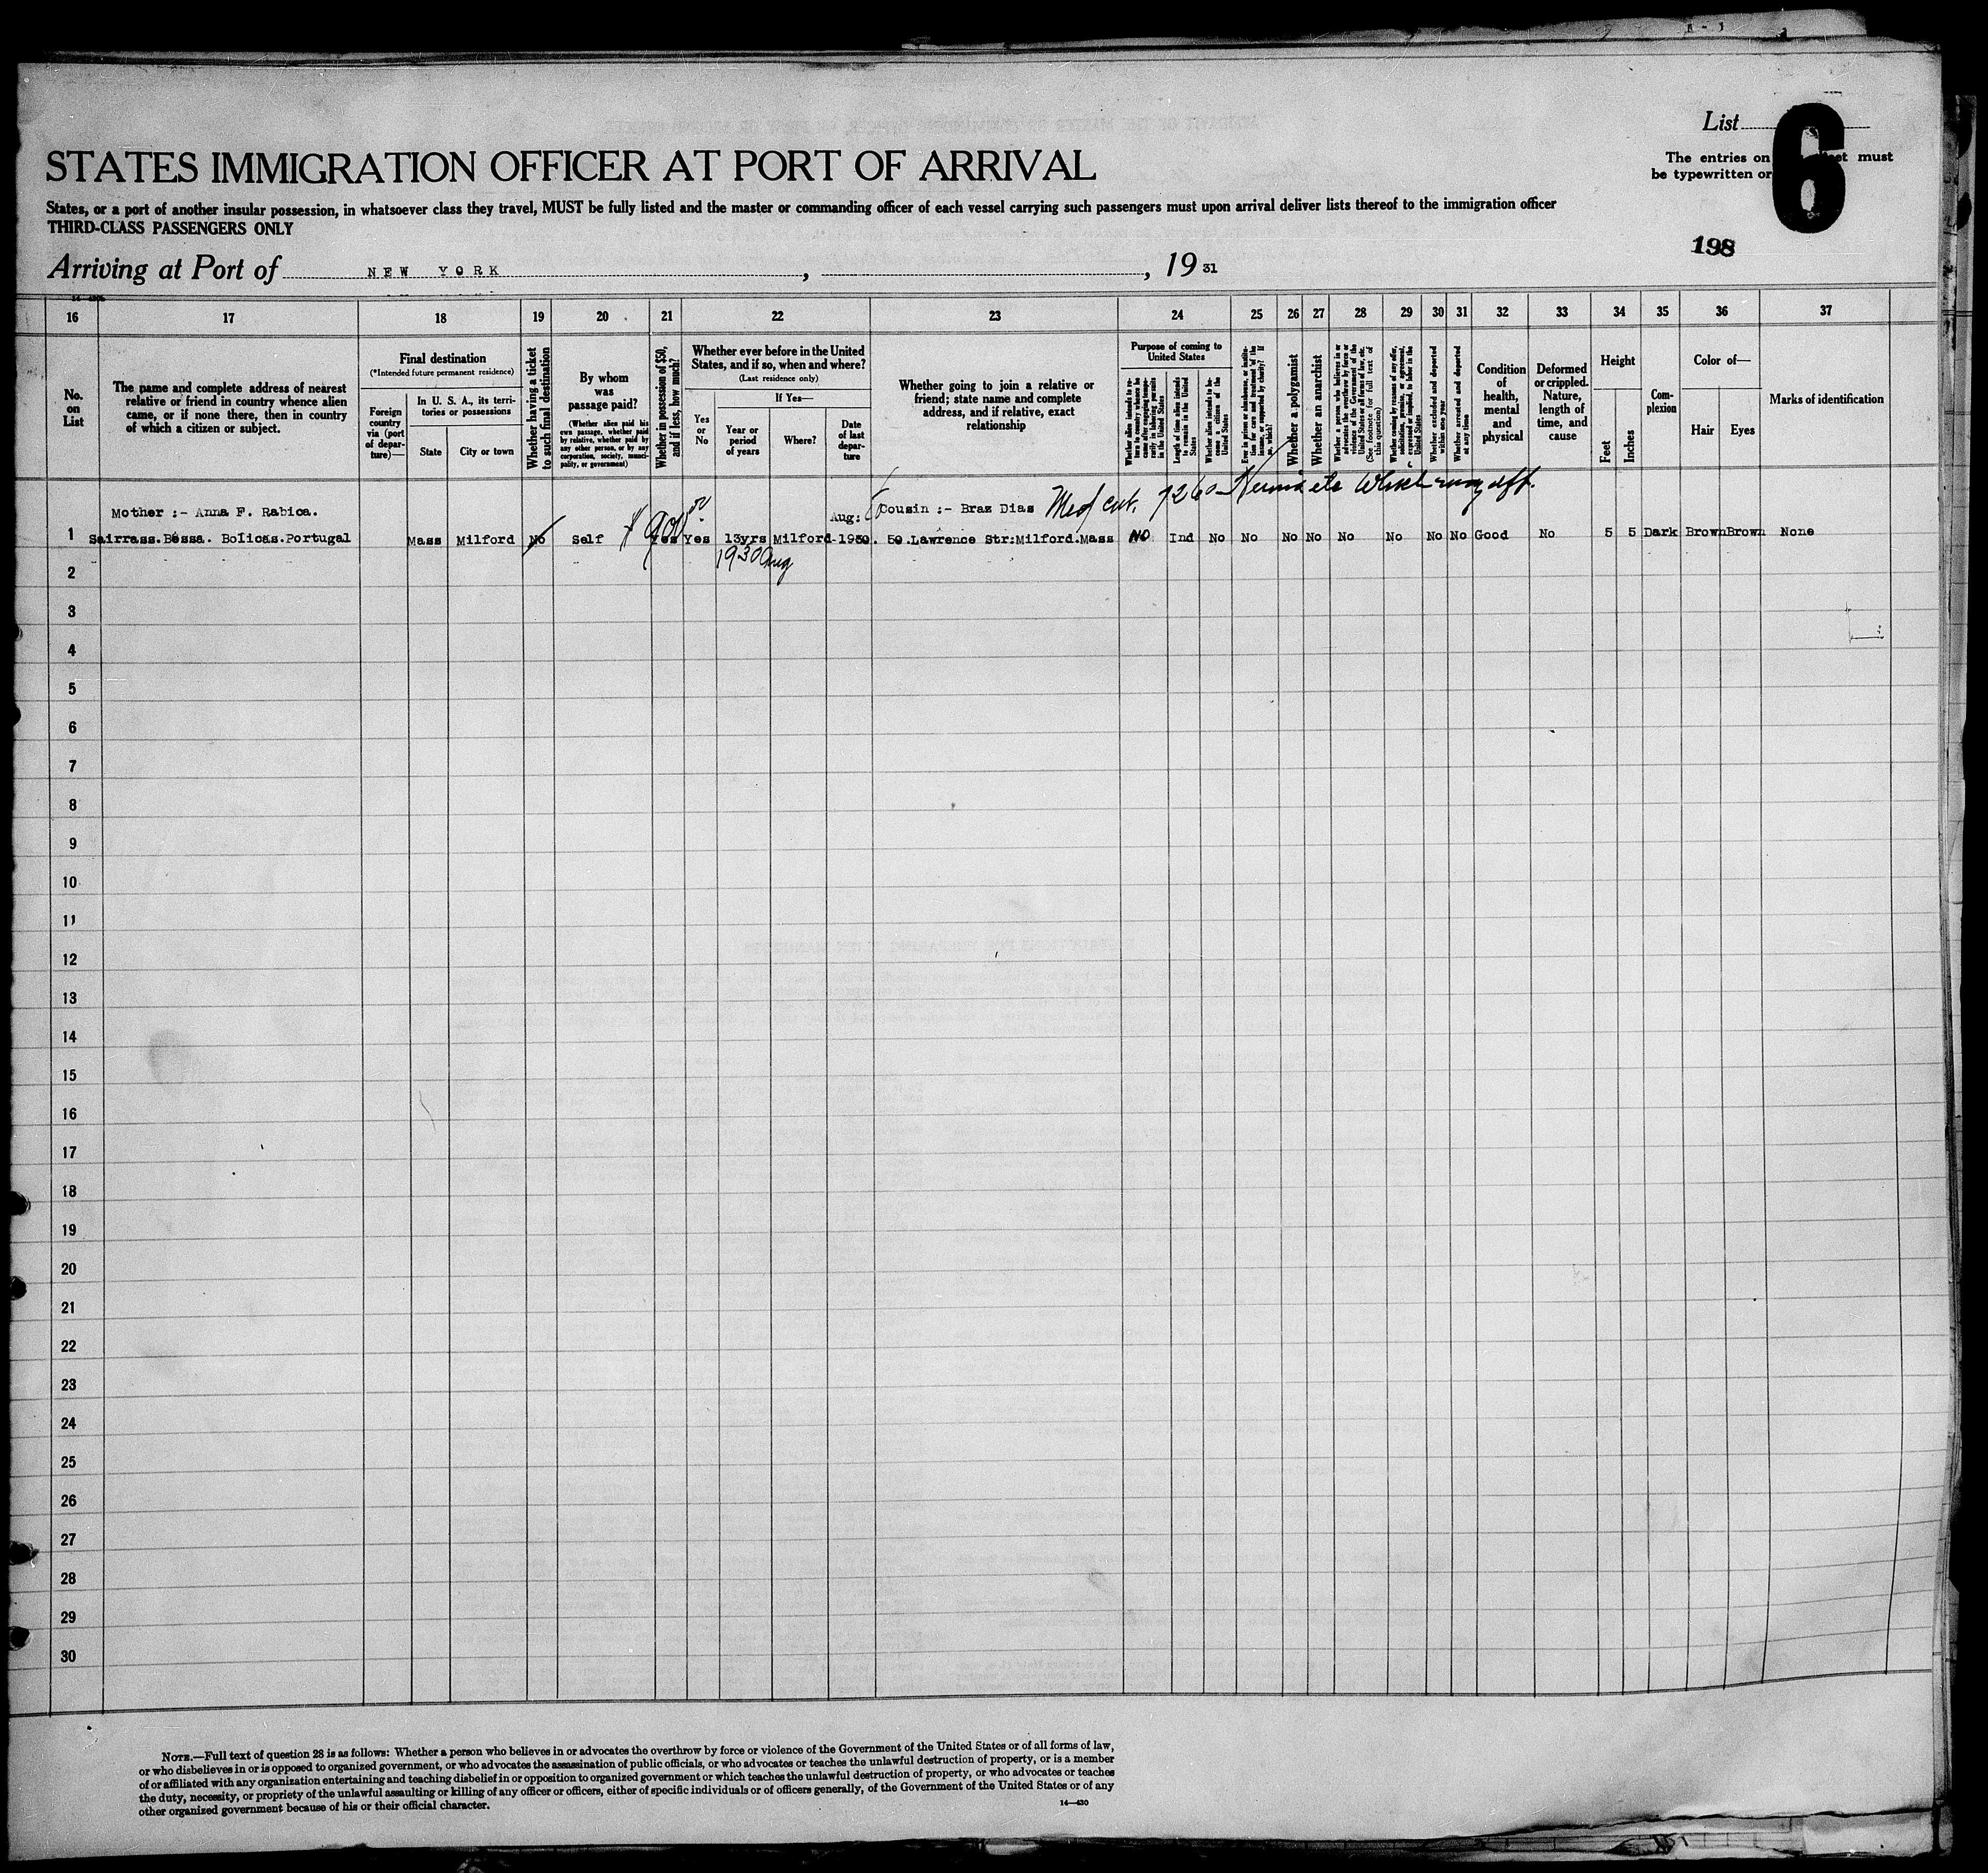 List
6
The entries on must
be typewritten or
STATES IMMIGRATION OFFICER AT PORT OF ARRIVAL
States, or a port of another insular possession, in whatsoever class they travel, MUST be fully listed and the master or commanding officer of each vessel carrying such passengers must upon arrival deliver lists thereof to the immigration officer
THIRD-CLASS PASSENGERS ONLY
198
Arriving at Port of NEW YORK, , 19 31
16 17 18 19 20 21 22 23 24 25 26 27 28 29 30 31 32 33 34 35 36 37
No. on List
The name and complete address of nearest relative or friend in country whence alien came, or if none there, then in country of which a citizen or subject.
Final destination
(*Intended future permanent residence)
Foreign country via (port of departure)—
In U. S. A., its territories or possessions
State
City or town
Whether having a ticket to such final destination
By whom was passage paid?
(Whether alien paid his own passage, whether paid by relative, whether paid by any other person, or by any corporation, society, municipality, or government)
Whether in possession of $50, and if less, how much?
Whether ever before in the United States, and if so, when and where?
(Last residence only)
Yes or No
If Yes—
Year or period of years
Where?
Date of last departure
Whether going to join a relative or friend; state name and complete address, and if relative, exact relationship
Purpose of coming to United States
Whether alien intends to return to country whence he came after engaging temporarily in laboring pursuits in the United States
Length of time alien intends to remain in the United States
Whether alien intends to become a citizen of the United States
Ever in prison or almshouse, or institution for care and treatment of the insane, or supported by charity? If so, which?
Whether a polygamist
Whether an anarchist
Whether a person who believes in or advocates the overthrow by force or violence of the Government of the United States or all forms of law, etc. (See footnote for full text of this question)
Whether coming by reason of any offer, solicitation, promise, or agreement, expressed or implied, to labor in the United States
Whether excluded and deported within one year
Whether arrested and deported at any time
Condition of health, mental and physical
Deformed or crippled. Nature, length of time, and cause
Height
Feet
Inches
Complexion
Color of—
Hair
Eyes
Marks of identification
Mother :- Anna F. Rabica. Aug: Cousin :- Braz Dias Med cert.
1 Sairrass.Bessa. Bolicas.Portugal Mass Milford No Self Yes Yes 13yrs Milford-1930. 50.Lawrence Str:Milford.Mass NO Ind No No No No No No No No Good No 5 5 Dark Brown Brown None
1930 Aug
2
3
4
5
6
7
8
9
10
11
12
13
14
15
16
17
18
19
20
21
22
23
24
25
26
27
28
29
30
NOTE.—Full text of question 28 is as follows: Whether a person who believes in or advocates the overthrow by force or violence of the Government of the United States or of all forms of law,
or who disbelieves in or is opposed to organized government, or who advocates the assassination of public officials, or who advocates or teaches the unlawful destruction of property, or is a member
of or affiliated with any organization entertaining and teaching disbelief in or opposition to organized government or which teaches the unlawful destruction of property, or who advocates or teaches
the duty, necessity, or propriety of the unlawful assaulting or killing of any officer or officers, either of specific individuals or of officers generally, of the Government of the United States or of any
other organized government because of his or their official character.
14—430